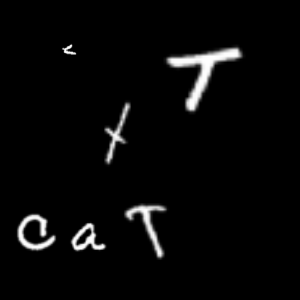 < T
x
C a T